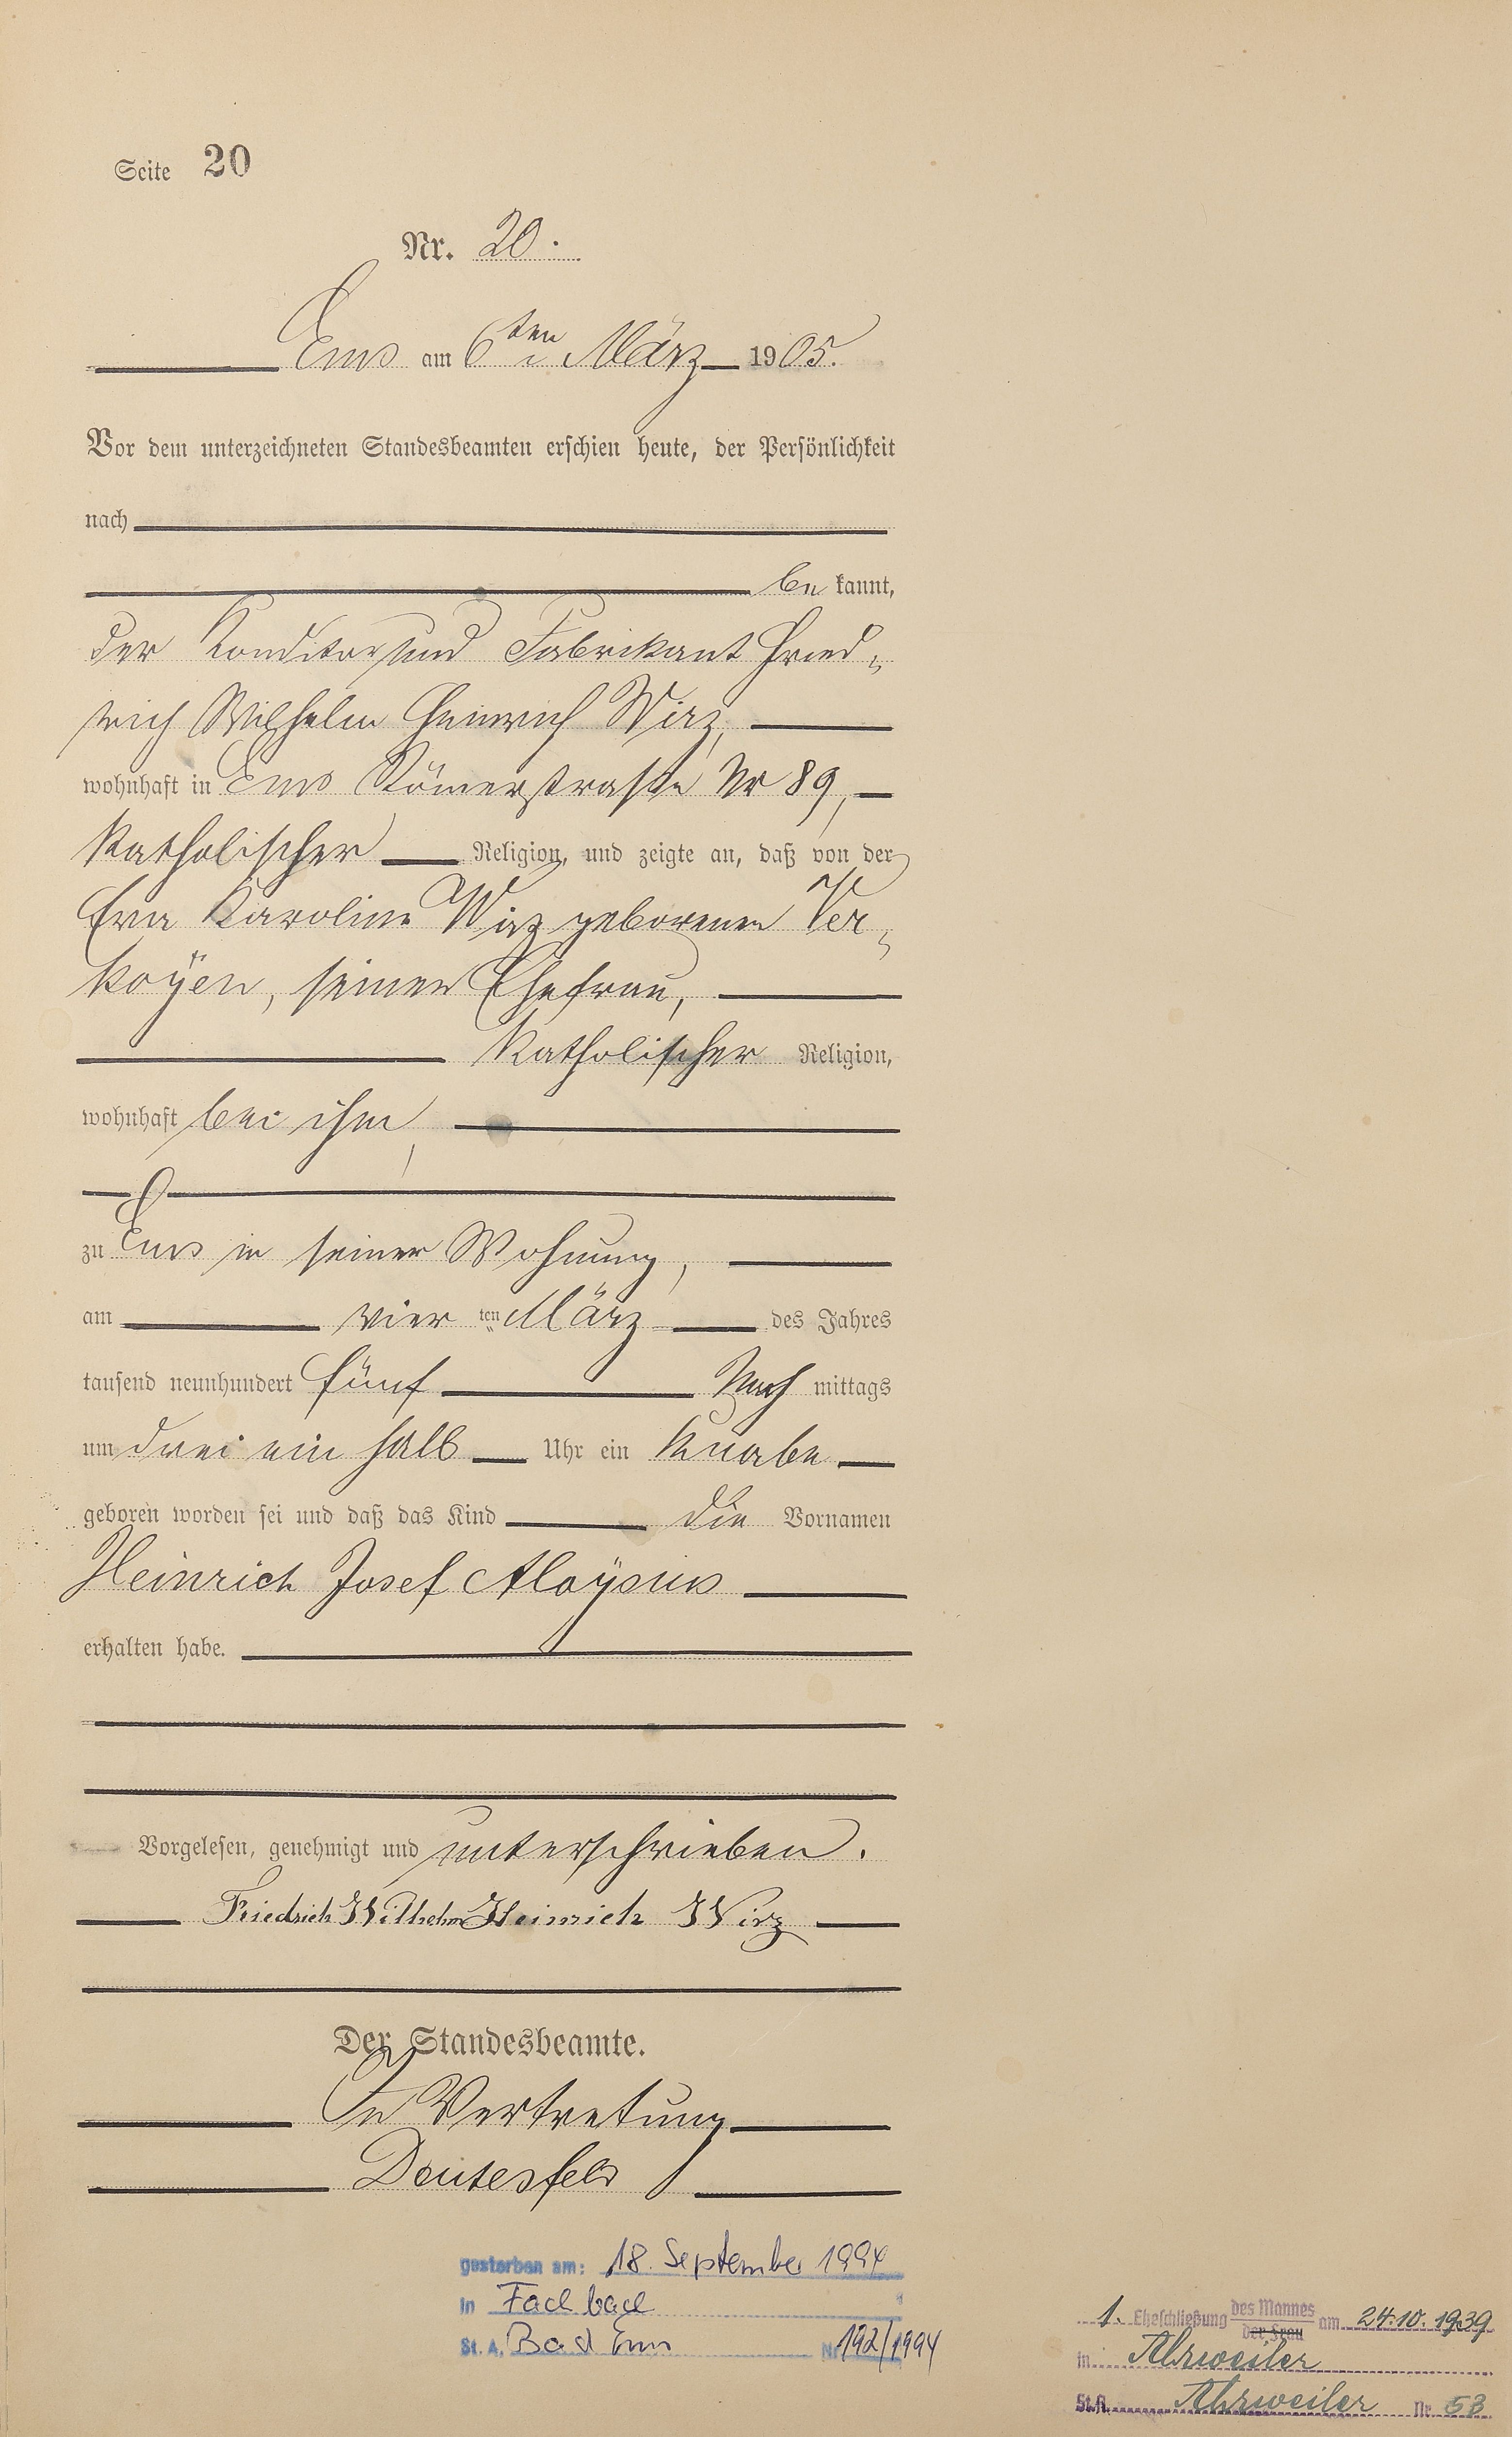 Seite 20
Nr. 20.
Ems am 6ten März 1905.
Vor dem unterzeichneten Standesbeamten erschien heute, der Persönlichkeit
nach
be kannt,
der Konditor und Fabrikant Fried-
rich Wilhelm Heinrich Wirz,
wohnhaft in Ems Römerstraße Nr 89,
katholischer Religion, und zeigte an, daß von der
Eva Karoline Wirz geborenen Ver-
koÿen, seiner Ehefrau,
katholischer Religion,
wohnhaft bei ihm,
zu Ems in seiner Wohnung,
am vier ten März des Jahres
tausend neunhundert fünf Nach mittags
um drei ein halb Uhr ein Knabe
geboren worden sei und daß das Kind die Vornamen
Heinrich Josef Aloÿsius
erhalten habe.
Vorgelesen, genehmigt und unterschrieben.
Friedrich Wilhelm Heinrich Wirz
Der Standesbeamte.
In Vertretung
Deutesfeld
gestorben am: 18. September 1994
in Fachbach
St. A. Bad Ems Nr 192/1994
1. Eheschließung des Mannes der Frau am 24.10.1939
in Ahrweiler
St.A. Ahrweiler Nr. 53